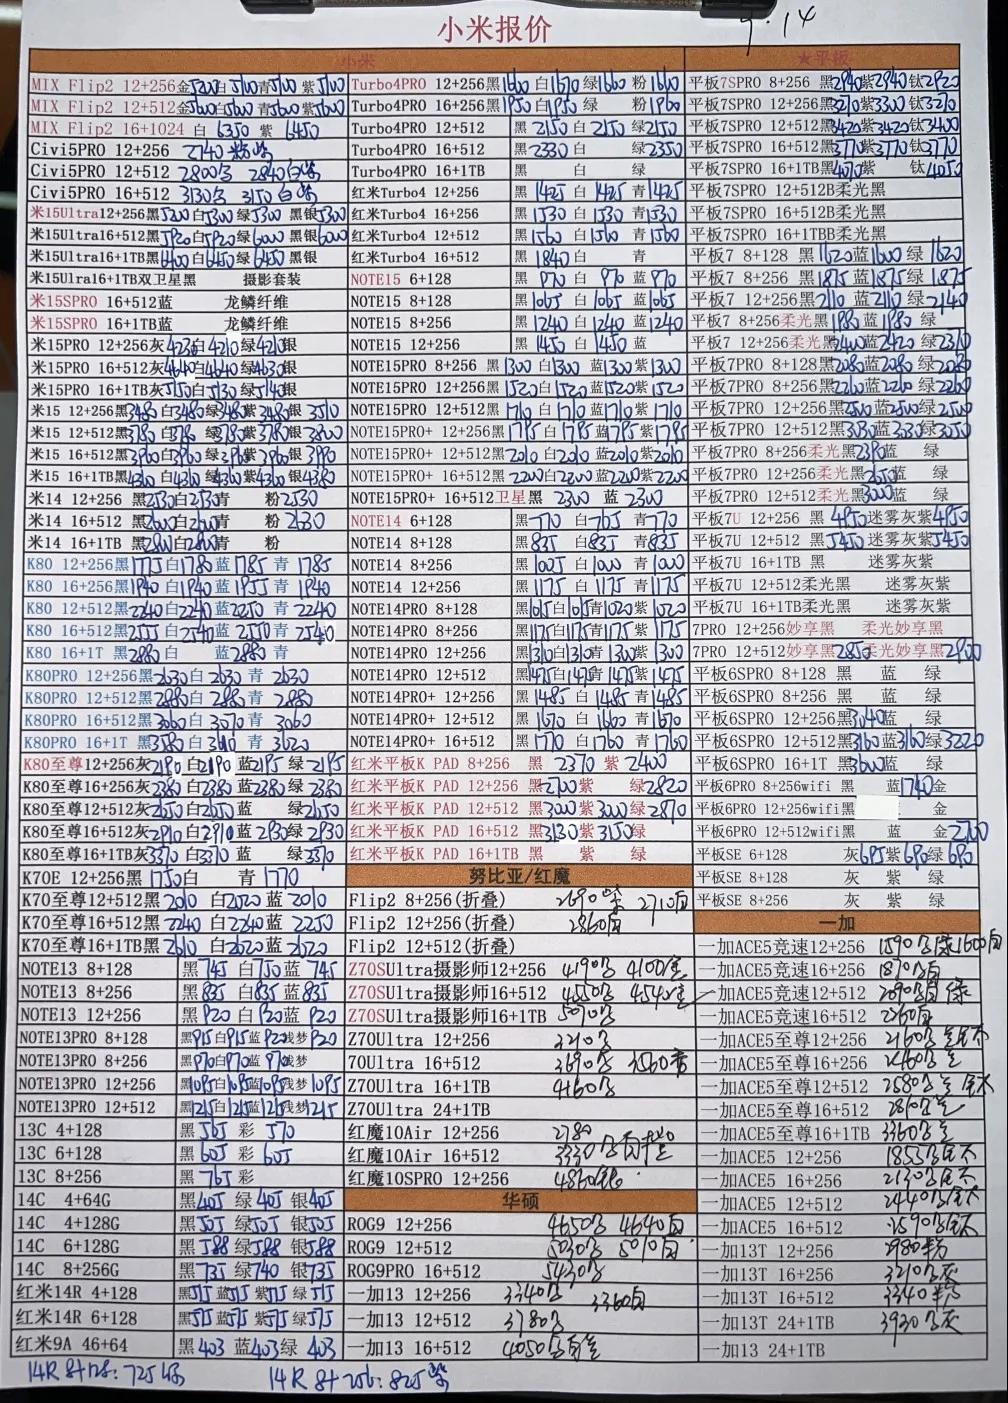 小米报价
9.14
小米
MIX Flip2 12+256金5200白5100青5100 紫5100
MIX Flip2 12+512金5600白5600青5600紫5600
MIX Flip2 16+1024 白 6350 紫 6450
Civi5PRO 12+256 2740 粉紫
Civi5PRO 12+512 2800 2840白紫
Civi5PRO 16+512 3130 3150白紫
米15Ultra12+256黑5200白5300绿5300 黑银5300
米15Ultra16+512黑5920白5920绿6000 黑银6000
米15Ultra16+1TB黑6400白6450绿6450 黑银
米15Ulra16+1TB双卫星黑 摄影套装
米15SPRO 16+512蓝 龙鳞纤维
米15SPRO 16+1TB蓝 龙鳞纤维
米15PRO 12+256灰4230白4210绿4210银
米15PRO 16+512灰4640白4640绿4630银
米15PRO 16+1TB灰5150白5130绿5140银
米15 12+256黑3480白3480绿3480紫3480银 3510
米15 12+512黑3780白3780 绿3780紫3780银3800
米15 16+512黑3960白3960绿3960紫3960银3990
米15 16+1TB黑4360白4310绿4310紫4360银4380
米14 12+256 黑2530白2530青 粉2530
米14 16+512 黑2600白2600青 粉2630
米14 16+1TB 黑2800白2800青 粉
K80 12+256黑1775白1780蓝 1785 青 1785
K80 16+256黑1940白1940蓝 1955 青 1940
K80 12+512黑2240白2240蓝 2250 青 2240
K80 16+512黑2555白2540蓝 2550 青 2540
K80 16+1T 黑2880白 蓝2880 青
K80PRO 12+256黑2630白 2630 青 2630
K80PRO 12+512黑2880白 2880 青 2880
K80PRO 16+512黑3060白 3070 青 3060
K80PRO 16+1T 黑3580白 3610 青 3620
K80至尊12+256灰2190 白2190 蓝2195 绿 2195
K80至尊16+256灰2380白2380蓝2380绿2380
K80至尊12+512灰2650白2650蓝 绿2650
K80至尊16+512灰2910白2910蓝2930绿2930
K80至尊16+1TB灰3370白3370蓝 绿3370
K70E 12+256黑 1750白 青 1770
K70至尊12+512黑 2010 白2020 蓝2010
K70至尊16+512黑 2240 白2240 蓝2250
K70至尊16+1TB黑 2610 白2620 蓝2620
NOTE13 8+128 黑 745 白750蓝 745
NOTE13 8+256 黑 835 白835 蓝835
NOTE13 12+256 黑 920 白 920 蓝 920
NOTE13PRO 8+128 黑915白915蓝 920浅梦920
NOTE13PRO 8+256 黑970白970蓝970浅梦
NOTE13PRO 12+256 黑1095白1095蓝1095浅梦 1095
NOTE13PRO 12+512 黑1215白1215蓝1215浅梦1215
13C 4+128 黑 565 彩 570
13C 6+128 黑 605 彩 605
13C 8+256 黑 765 彩
14C 4+64G 黑405 绿 405 银405
14C 4+128G 黑505 绿505 银505
14C 6+128G 黑588 绿588 银588
14C 8+256G 黑735 绿740 银735
红米14R 4+128 黑515 蓝515 紫515 绿515
红米14R 6+128 黑575蓝575 紫575绿575
红米9A 46+64 黑403 蓝403绿 403
14R 8+128: 725绿
14R 8+256: 825紫
Turbo4PRO 12+256黑1660 白1670 绿1660 粉 1660
Turbo4PRO 16+256黑1950 白1950 绿 粉1960
Turbo4PRO 12+512 黑 2150白 2150 绿2150
Turbo4PRO 16+512 黑 2330白 绿 2350
Turbo4PRO 16+1TB 黑 白 绿
红米Turbo4 12+256 黑 1425 白 1425 青1425
红米Turbo4 16+256 黑 1530 白 1530 青1530
红米Turbo4 12+512 黑 1560 白 1560 青1560
红米Turbo4 16+512 黑 1840白 青
NOTE15 6+128 黑 970 白 970 蓝970
NOTE15 8+128 黑 1065 白 1065 蓝1065
NOTE15 8+256 黑 1240 白 1240 蓝1240
NOTE15 12+256 黑 1450 白 1450 蓝
NOTE15PRO 8+256 黑 1300 白1300 蓝1300紫1300
NOTE15PRO 12+256 黑 1520白1520蓝1520紫1520
NOTE15PRO 12+512 黑1710 白1710 蓝1710紫1710
NOTE15PRO+ 12+256黑1795 白1795 蓝1795紫1795
NOTE15PRO+ 12+512黑2010 白2010 蓝2010紫2010
NOTE15PRO+ 16+512黑2200白2200蓝2200紫2200
NOTE15PRO+ 16+512卫星黑 2300 蓝 2300
NOTE14 6+128 黑770 白765 青770
NOTE14 8+128 黑835 白835 青835
NOTE14 8+256 黑1005 白1000 青1000
NOTE14 12+256 黑1175 白1175 青1175
NOTE14PRO 8+128 黑1015白1015青1020紫1020
NOTE14PRO 8+256 黑1175白1175青1175紫1175
NOTE14PRO 12+256 黑1310白1310青1300紫1300
NOTE14PRO 12+512 黑1475白1475青1475紫1475
NOTE14PRO+ 12+256 黑1485 白1485 青1485
NOTE14PRO+ 12+512 黑1670 白1660 青1670
NOTE14PRO+ 16+512 黑1770 白1760 青1760
红米平板K PAD 8+256 黑 2370 紫 2400
红米平板K PAD 12+256 黑2700紫 绿2820
红米平板K PAD 12+512 黑3000紫3000绿2870
红米平板K PAD 16+512 黑3130紫3150绿
红米平板K PAD 16+1TB 黑 紫 绿
努比亚/红魔
Flip2 8+256(折叠) 2690 2710白
Flip2 12+256(折叠) 2860白
Flip2 12+512(折叠)
Z70SUltra摄影师12+256 4190 4100
Z70SUltra摄影师16+512 4550 4540
Z70SUltra摄影师16+1TB 5070
Z70Ultra 12+256 3210
70Ultra 16+512 3690 3560
Z70Ultra 16+1TB 4160
Z70Ultra 24+1TB
红魔10Air 12+256 2780
红魔10Air 16+512 3330
红魔10SPRO 12+256 4860银
华硕
ROG9 12+256 4650 4640白
ROG9 12+512 5030 5010白
ROG9PRO 16+512 5430
一加13 12+256 3340 3360白
一加13 12+512 3780
一加13 16+512 4050
★平板
平板7SPRO 8+256 黑2940紫2940钛2920
平板7SPRO 12+256 黑3270紫3300钛3270
平板7SPRO 12+512黑3420紫3420钛3400
平板7SPRO 16+512黑3770紫3770钛3770
平板7SPRO 16+1TB黑4070紫 钛4050
平板7SPRO 12+512B柔光黑
平板7SPRO 16+512B柔光黑
平板7SPRO 16+1TBB柔光黑
平板7 8+128 黑1620蓝1600 绿 1620
平板7 8+256 黑1875蓝1875绿 1875
平板7 12+256黑2110 蓝2110绿2140
平板7 8+256柔光黑1980 蓝1980 绿
平板7 12+256柔光黑2400蓝2420 绿2370
平板7PRO 8+128黑2080蓝2080 绿2080
平板7PRO 8+256黑2260蓝2260 绿2260
平板7PRO 12+256黑2500蓝2500绿2500
平板7PRO 12+512黑3030蓝3030绿3050
平板7PRO 8+256柔光黑2390蓝 绿
平板7PRO 12+256柔光黑2650蓝 绿
平板7PRO 12+512柔光黑3000蓝 绿
平板7U 12+256 黑 4950迷雾灰紫4950
平板7U 12+512 黑5450迷雾灰紫5450
平板7U 16+1TB 黑 迷雾灰紫
平板7U 12+512柔光黑 迷雾灰紫
平板7U 16+1TB柔光黑 迷雾灰紫
7PRO 12+256妙享黑 柔光妙享黑
7PRO 12+512妙享黑2850柔光妙享黑2900
平板6SPRO 8+128 黑 蓝 绿
平板6SPRO 8+256 黑 蓝 绿
平板6SPRO 12+256黑3040蓝 绿
平板6SPRO 12+512黑3160蓝3160绿3220
平板6SPRO 16+1T 黑3600蓝 绿
平板6PRO 8+256wifi 黑 蓝1740金
平板6PRO 12+256wifi黑 金
平板6PRO 12+512wifi黑 蓝 金2700
平板SE 6+128 灰695紫690绿690
平板SE 8+128 灰 紫 绿
平板SE 8+256 灰 紫 绿
一加
一加ACE5竞速12+256 1590 绿1600白
一加ACE5竞速16+256 1870白
一加ACE5竞速12+512 2090白 绿
一加ACE5竞速16+512 2360白
一加ACE5至尊12+256 2160
一加ACE5至尊16+256 2460
一加ACE5至尊12+512 2580
一加ACE5至尊16+512 2810
一加ACE5至尊16+1TB 3360
一加ACE5 12+256 1855
一加ACE5 16+256 2130
一加ACE5 12+512 2440
一加ACE5 16+512 2590
一加13T 12+256 2980粉
一加13T 16+256 3210灰
一加13T 16+512 3340
一加13T 24+1TB 3930灰
一加13 24+1TB